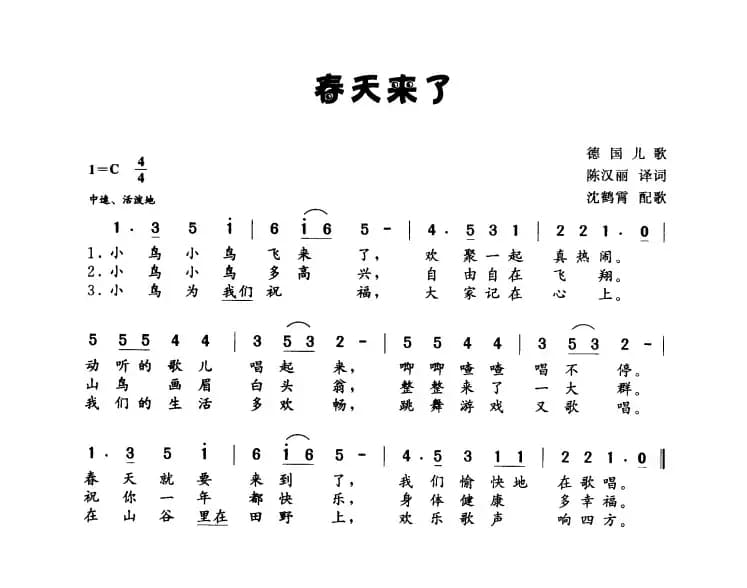 春天来了
1=C 4/4
德国儿歌
陈汉丽 译词
中速、活泼地
沈鹤霄 配歌
1 . 3 5 i | 6 i 6 5 - | 4 . 5 3 1 | 2 2 1 . 0 |
1.小鸟小鸟飞来了，欢聚一起真热闹。
2.小鸟小鸟多高兴，自由自在飞翔。
3.小鸟为我们祝福，大家记在心上。
5 5 5 4 4 | 3 5 3 2 - | 5 5 5 4 4 | 3 5 3 2 - |
动听的歌儿唱起来，唧唧喳喳唱不停。
山鸟画眉白头翁，整整来了一大群。
我们的生活多欢畅，跳舞游戏又歌唱。
1 . 3 5 i | 6 i 6 5 - | 4 . 5 3 1 1 | 2 2 1 . 0 ‖
春天就要来到了，我们愉快地在歌唱。
祝你一年都快乐，身体健康多幸福。
在山谷里在田野上，欢乐歌声响四方。